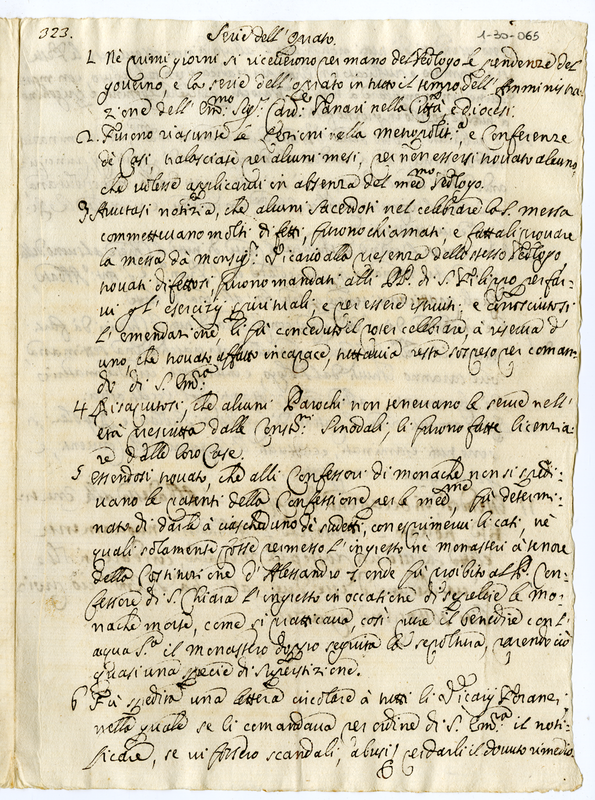 323.
Serie dell' oprato.
1-30-065
1. Nè primi giorni si riceverono per mano del Teologo le pendenze del
governo, e la serie dell' oprato in tutto il tempo dell' Amministra-
zione dell' Em.mo Sig.r Card.e Fanari nella Città e Diocesi.
2. Furono riassunte le Lezioni nella metropolit.a, e Conferenze
de Casi, tralasciate per alcuni mesi, per non essersi trovato alcuno,
che volesse applicarsi in absenza del med.mo Teologo.
3. Avutasi notizia, che alcuni Sacerdoti nel celebrare la S. messa
commettevano molti difetti, furono chiamati, e fattali provare
la messa da Monsig.r Vicario alla presenza dello stesso Teologo
trovati difettosi furono mandati alli PP. di S. Filippo per far-
vi gl' esercizij spirituali e per essere istruiti: e conosciutosi
l' emendazione, li fù conceduto il poter celebrare, à riserva d'
uno, che trovato affatto incapace, tuttavia resta sospeso per coman-
do di S. Em.a
4 Risaputosi, che alcuni Parochi non tenevano le serve nell'
età prescritta dalle Const.ni Sinodali, li furono fatte licenzia-
re dalle loro Case.
5 essendosi trovato, che alli Confessori di monache non si spedi-
vano le patenti della Confessione per le med.me, fù determi-
nato di darle à ciascheduno de sudetti, con esprimervi li casi, nè
quali solamente fosse permesso l' ingresso nè monasteri à tenore
della Costituzione d' Alessandro 7. onde fù proibito al P. Con-
fessore di S. Chiara l' ingresso in occasione di sepelire le mo-
nache morte, come si pratticava, così pure il benedire con l'
aqua S.a il monastero doppo seguita la sepoltura, parendo ciò
quasi una specie di superstizione.
6 Fù spedita una lettera circolare à tutti li Vicarij foranei,
nella quale se li comandava per ordine di S. Em.za il noti-
ficare, se vi fossero scandali, abusi per darli il dovuto rimedio